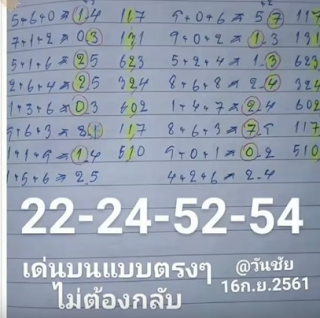 5+6+0 ⇒ 1.4 117 5+0+6 ⇒ 5 7 117
7+1+2 ⇒ 0 3 131 9+0+2 ⇒ 1.3 131
5+1+6 ⇒ 2 5 623 5+2+4 ⇒ 1.3 623
2+6+4 ⇒ 2 5 324 8+6+8 ⇒ 2.4 324
1+3+6 ⇒ 0 3 602 1+4+7 ⇒ 2 4 602
5+6+3 ⇒ 8 1 117 8+6+3 ⇒ 7.5 117
1+1+9 ⇒ 1.4 510 9+0+1 ⇒ 0.2 510
1+5+6 ⇒ 2 5 4+2+6 ⇒ 2.4
22-24-52-54
เด่นบนแบบตรงๆ @วันชัย
ไม่ต้องกลับ 16ก.ย.2561